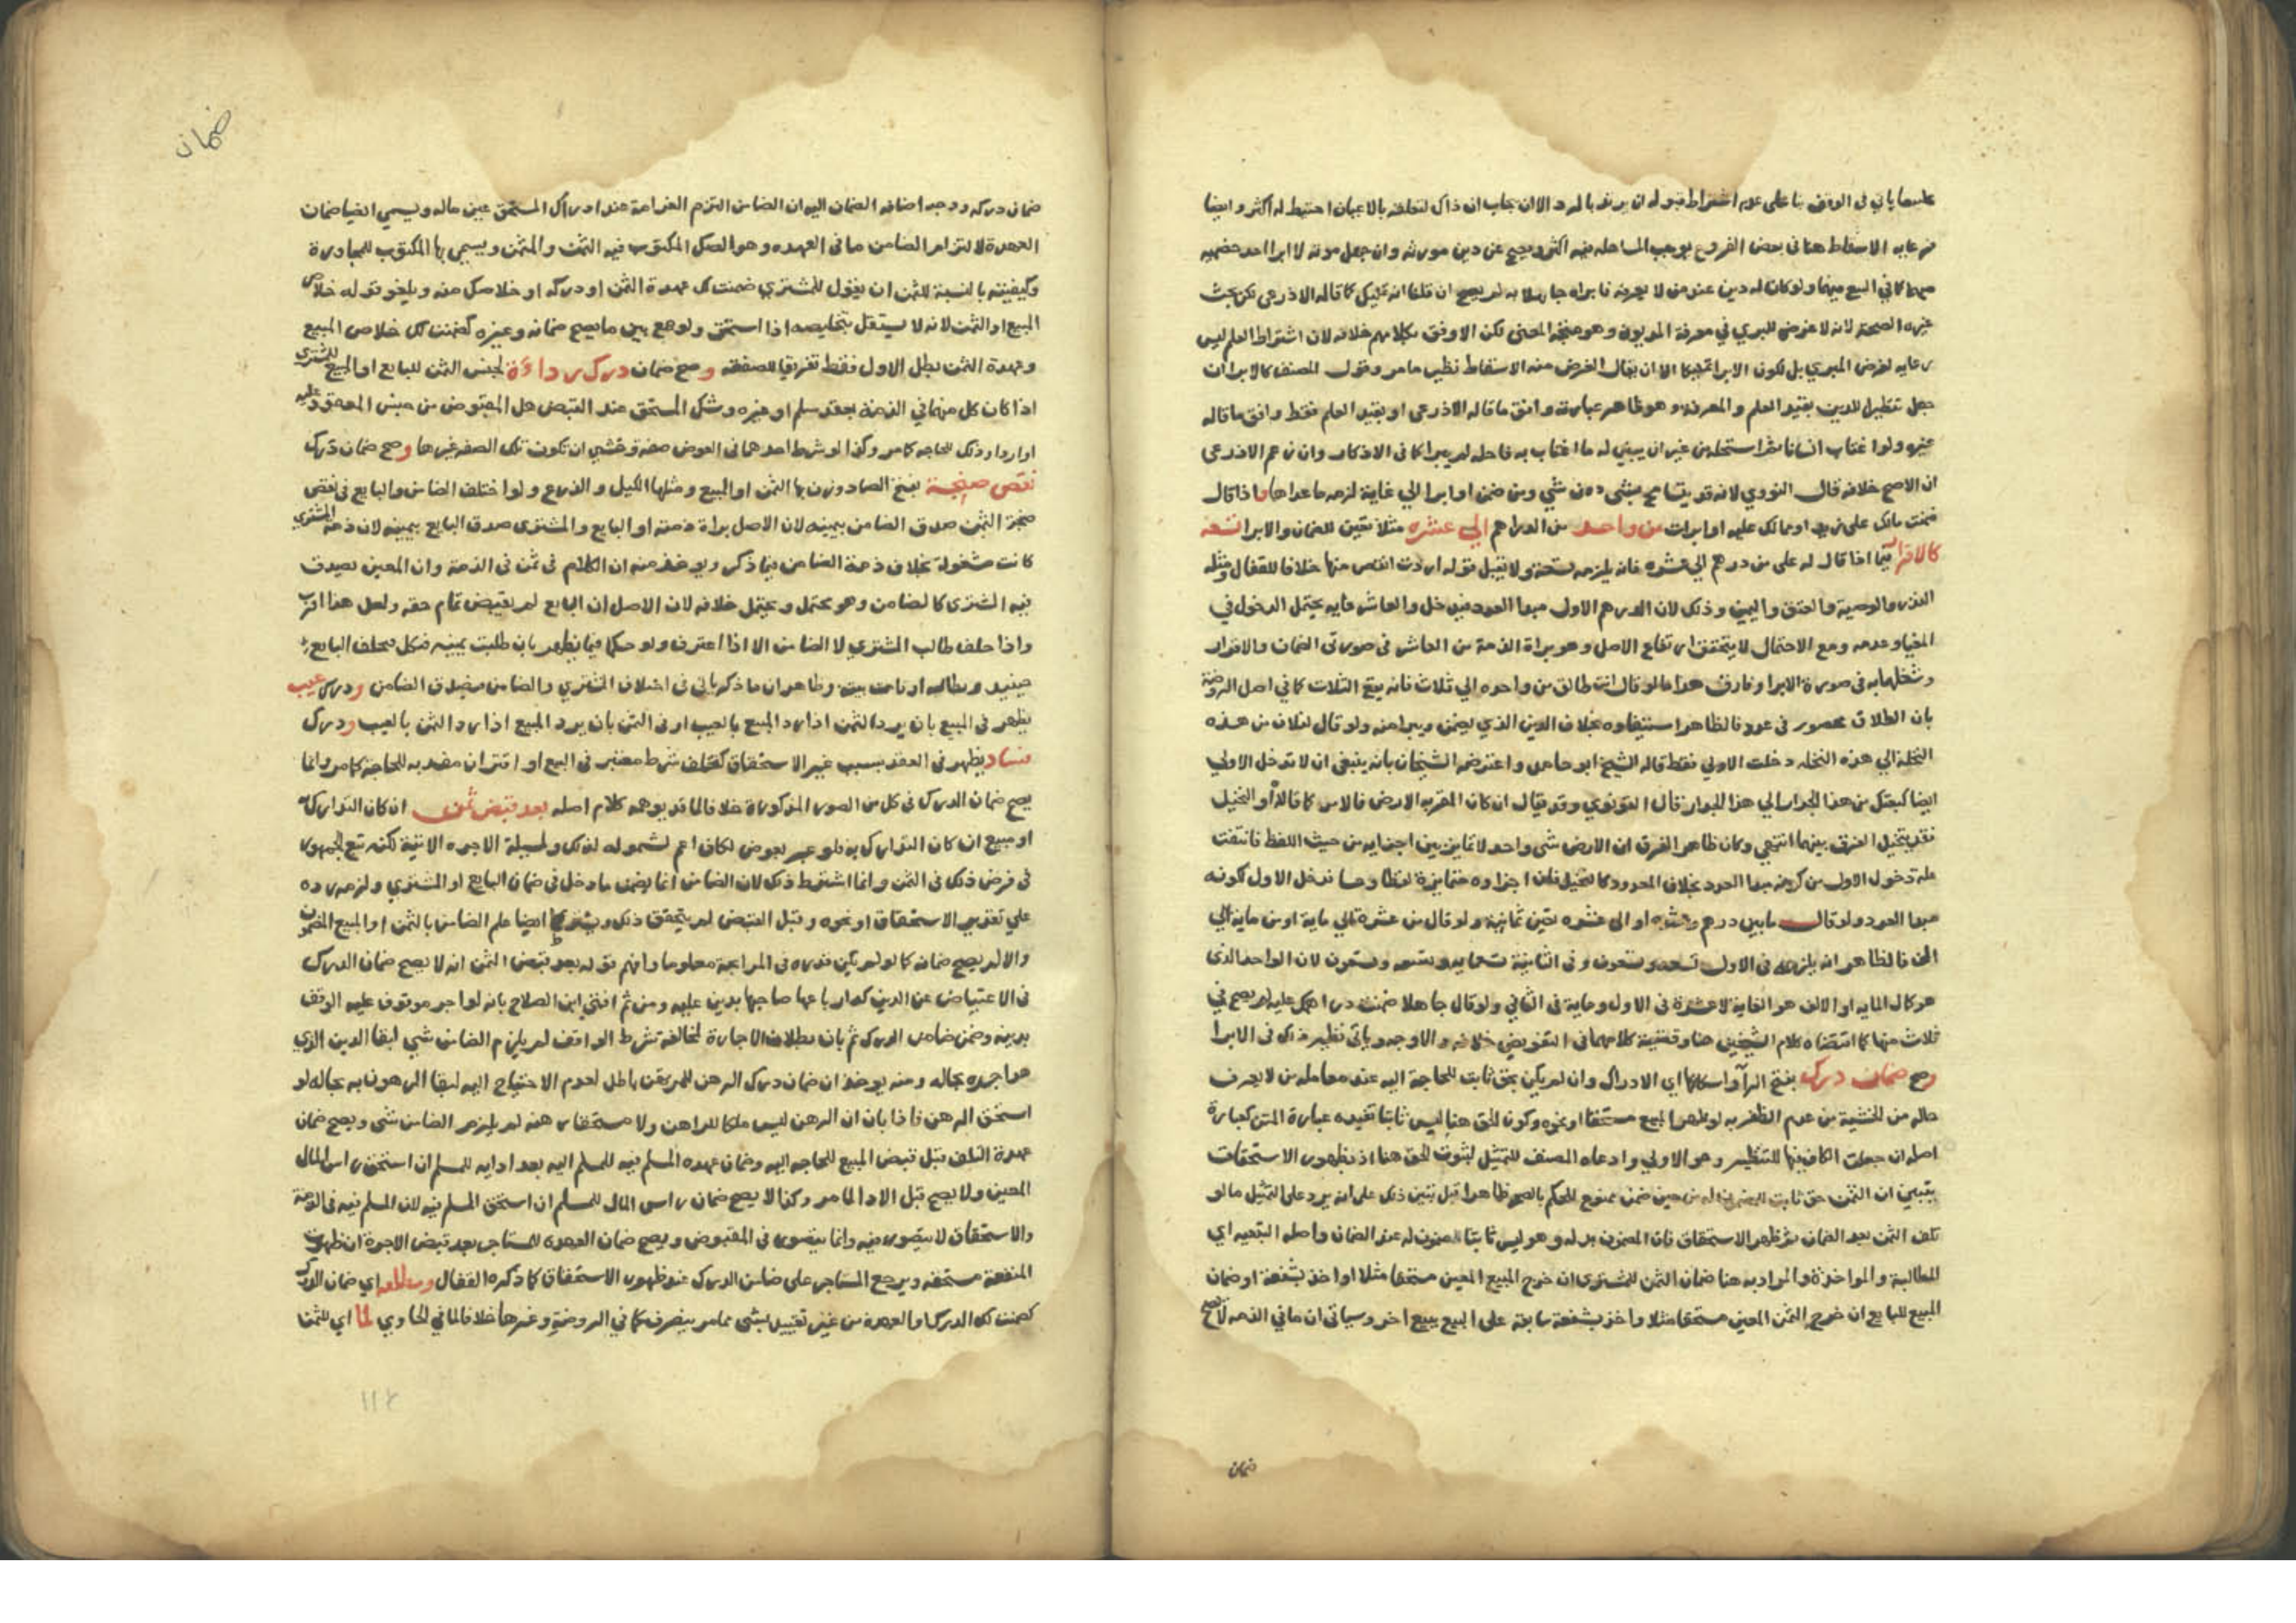 على ما ياتي في الوقف بنا على عدم اشتراط قبوله ان يرتد بالرد الا ان يجاب ان ذاك لتعلقه بالاعيان احتيط له اكثر وايضا
فرعايه الاسقاط هنا في بعض الفروع يوجب المساهله فيه اكثر ويصح عن دين مورثه وان جهل موته لا ابرا احد خصميه
مبهما كما في البيع فيهما ولو كان له دين عند من لا يعرفه فابراه جاهلا به لم يصح ان قلنا انه تمليك كما قاله الاذرعي لكن بحث
غيره الصحة لانه لا غرض للمبري في معرفة المديون وهو متجه المعنى لكن الاوفق بكلامهم خلافه لان اشتراط العلم ليس
رعايه لغرض المبري بل لكون الابرا تمليكا الا ان يقال الغرض منه الاسقاط نظير ما مر وقول المصنف كالابرا ان
جعل تنظيرا للدين بقيد العلم والمعرفة وهو ظاهر عبارته وافق ما قاله الاذرعي او بقيد العلم فقط وافق ما قاله
غيره ولو اغتاب انسانا ثم استحله من غير ان يبين له ما اغتاب به فاحله لم يبرا كما في الاذكار وان زعم الاذرعي
ان الاصح خلافه قال النووي لانه قد يتسامح بشي دون شي ومن ضمن او ابرا الي غاية لزمه ما عداها واذا قال
ضمنت مالك على زيد او مالك عليه او ابرات من واحد من الدراهم الي عشره مثلا تعين للضمان والابرا تسعه
كالاقرار فيما اذا قال له على من درهم الي عشره فانه يلزمه تسعة ولا يقبل قوله اردت انقص منها خلافا للقفال ومثله
النذر والوصية والعتق واليمين وذلك لان الدرهم الاول مبدا العدد فيدخل والعاشر غايه يحتمل الدخول في
المغيا وعدمه ومع الاحتمال لا يتحقق ارتفاع الاصل وهو براة الذمة من العاشر في صورتي الضمان والاقرار
وشغلها به في صورة الابرا وفارق هذا ما لو قال انت طالق من واحده الي ثلاث فانه يقع الثلاث كما في اصل الروضة
بان الطلاق محصور في عدد فالظاهر استيفاوه بخلاف الدين الذي يضمن ويبرا منه ولو قال لفلان من هذه
النخلة الي هذه النخله دخلت الاولي فقط قاله الشيخ ابو حامد واعترضه الشيخان بانه ينبغي ان لا تدخل الاولي
ايضا كبعتك من هذا الجدار الي هذا الجدار قال القونوي وقد يقال ان كان المقر به الارض فالامر كما قالاه او النخيل
فقد يتخيل الفرق بينهما انتهي وكان ظاهر الفرق ان الارض شي واحد لا تمايز بين اجزايه من حيث اللفظ فانتفت
علة دخول الاول من كونه مبدا العدد بخلاف المعدود كالنخيل فان اجزاوه متمايزة لفظا وحسا فدخل الاول لكونه
مبدا العدد ولو قال ما بين درهم وعشره او الى عشره تعين ثمانية ولو قال من عشرة الي ماية او من ماية الي
الف فالظاهر انه يلزمه في الاول تسعه وتسعون وفي الثانية تسعمايه وتسعه وتسعون لان الواحد الذي
هو كمال المايه او الالف هو الغاية لا عشرة في الاول وماية في الثاني ولو قال جاهلا ضمنت دراهمك عليه لم يصح في
ثلاث منها كما اقتضاه كلام الشيخين هنا وقضية كلامهما في التفويض خلافه والاوجه وياتي نظير ذلك في الابرا
وصح ضمان درك بفتح الرآ واسكانها اي الادراك وان لم يكن بحق ثابت للحاجة اليه عند معامله من لا يعرف
حاله من الخشية من عدم الظفر به لو ظهر المبيع مستحقا او نحوه وكون الحق هنا ليس ثابتا تفيده عبارة المتن كعبارة
اصله ان جعلت الكاف فيها للتنظير وهو الاولي وادعاه المصنف للتمثيل لثبوت الحق هنا اذ بظهور الاستحقاق
يتبين ان الثمن حق ثابت للمضمون له من حين ضمن ممنوع للحكم بالصحه ظاهرا قبل تبين ذلك على انه يرد على التمثيل ما لو
تلف الثمن بعد الضمان ثم ظهر الاستحقاق فان المضمون بدله وهو ليس ثابتا للمضمون له عند الضمان واصله التبعه اي
المطالبة والمواخذة والمراد به هنا ضمان الثمن للمشتري ان خرج المبيع المعين مستحقا مثلا او اخذ بشفعة او ضمان
المبيع للبايع ان خرج الثمن المعين مستحقا مثلا واخذ بشفعة سابقة على البيع ببيع اخر وسياتي ان ما في الذمه لا يصح
ضمان
ضمان
ضمان دركه ووجه اضافه الضمان اليه ان الضامن التزم الغرامة عند ادراك المستحق عين ماله ويسمي ايضا ضمان
العهدة لالتزام الضامن ما في العهده وهو الصك المكتوب فيه الثمن والمثمن ويسمي بها المكتوب للمجاورة
وكيفيته بالنسبة للثمن ان يقول للمشتري ضمنت لك عهدة الثمن او دركه او خلاصك منه ويلغو قوله خلاص
المبيع او الثمن لانه لا يستقل بتخليصه اذا استحق ولو جمع بين ما يصح ضمانه وغيره كضمنت لك خلاص المبيع
وعهدة الثمن بطل الاول فقط تفريقا للصفقه وصح ضمان درك رداءة لجنس الثمن للبايع او المبيع للمشتري
اذا كان كل منهما في الذمة بعقد سلم او غيره وشك المستحق عند القبض هل المقبوض من جنس المعقود عليه
او اردا وذلك للحاجه كما مر وكذا لو شرط احدهما في العوض صفة وخشي ان تكون تلك الصفه غيرها وصح ضمان درك
نقص صنجة بفتح الصاد وزن بها الثمن او المبيع ومثلها الكيل والذرع ولو اختلف الضامن والبايع في نقص
صنجة الثمن صدق الضامن بيمينه لان الاصل براة ذمته او البايع والمشتري صدق البايع بيمينه لان ذمة المشتري
كانت مشغولة بخلاف ذمة الضامن فيما ذكر ويوخذ منه ان الكلام في ثمن في الذمة وان المعين يصدق
فيه المشتري كالضامن وهو محتمل ويحتمل خلافه لان الاصل ان البايع لم يقبض تمام حقه ولعل هذا اقرب
واذا حلف طالب المشتري لا الضامن الا اذا اعترف ولو حكما فيما يظهر بان طلبت يمينه فنكل فحلف البايع
حينيذ ويطالبه او قامت بينة وظاهر ان ما ذكر ياتي في اختلاف المشتري والضامن فيصدق الضامن ودرك عيب
يظهر في المبيع بان يرد الثمن اذا رد المبيع بالعيب او في الثمن بان يرد المبيع اذا رد الثمن بالعيب ودرك
فساد يظهر في العقد بسبب غير الاستحقاق كتخلف شرط معتبر في البيع او اقتران مفسد به للحاجة كما مر وانما
يصح ضمان الدرك في كل من الصور المذكورة خلافا لما قد يوهمه كلام اصله بعد قبض ثمن ان كان التدارك له
او مبيع ان كان التدارك به فلو عبر بعوض لكان اعم لشموله لذلك ولمسيلة الاجره الاتية لكنه تبع الجمهور
في فرض ذلك في الثمن وانما اشترط ذلك لان الضامن انما يضمن ما دخل في ضمان البايع او المشتري ولزمه رده
علي تقدير الاستحقاق او نحوه وقبل القبض لم يتحقق ذلك ويشترط ايضا علم الضامن بالثمن او المبيع المضمون
والا لم يصح ضمانه كما لو لم يكن قدره في المرابحة معلوما وافهم قوله بعد قبض الثمن انه لا يصح ضمان الدرك
في الاعتياض عن الدين كدار باعها صاحبها بدين عليه ومن ثم افتي ابن الصلاح بانه لو اجر موقوف عليه الوقف
بدينه وضمن ضامن الدرك ثم بان بطلان الاجارة لمخالفة شرط الواقف لم يلزم الضامن شي لبقا الدين الذي
هو اجره بحاله ومنه يوخذ ان ضمان درك الرهن للمرتهن باطل لعدم الاحتياج اليه لبقا المرهون به بحاله لو
استحق الرهن فاذا بان ان الرهن ليس ملكا للراهن ولا مستحقا رهنه لم يلزم الضامن شي ويصح ضمان
عهدة التلف قبل قبض المبيع للحاجه اليه وضمان عهده المسلم فيه للمسلم اليه بعد ادايه للمسلم ان استحق راس المال
المعين ولا يصح قبل الادا لما مر وكذا لا يصح ضمان راس المال للمسلم ان استحق المسلم فيه لان المسلم فيه في الذمة
والاستحقاق لا يتصور فيه وانما يتصور في المقبوض ويصح ضمان العهده للمستاجر بعد قبض الاجرة ان ظهرت
المنفعة مستحقه ويرجع المستاجر على ضامن الدرك عند ظهور الاستحقاق كما ذكره القفال ومطلقه اي ضمان الدرك
كضمنت لك الدرك او العهدة من غير تقييد بشي مما مر ينصرف كما في الروضة وغيرها خلافا لما في الحاوي لما اي للثمن
١١٤